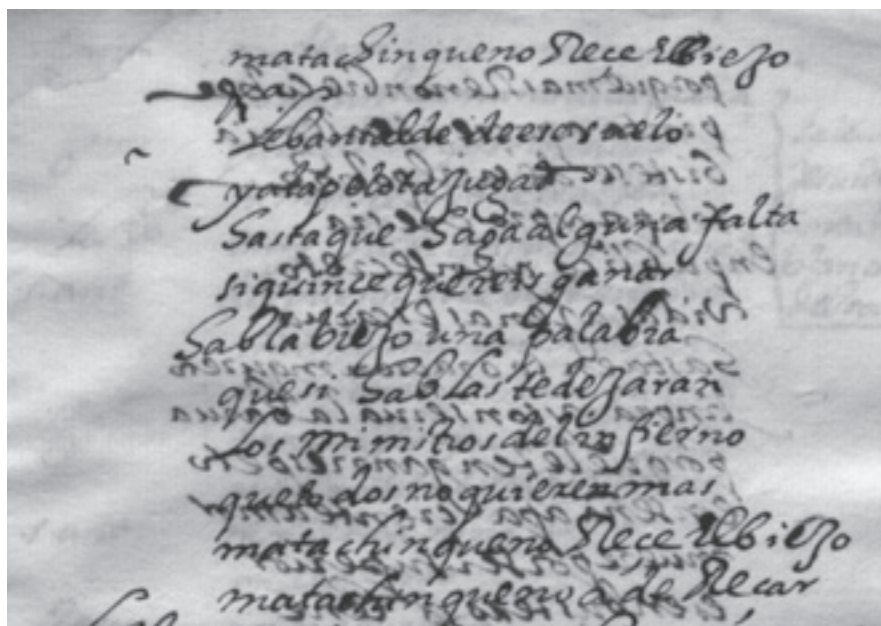 matachin que no Rece el biejo
Lebantalde de ese suelo
y a la pelota jugad
hasta que haga alguna falta
si quince quereis ganar
habla biejo una palabra
que si hablas te dejaran
Los ministros del infierno
que todos no quieren mas
matachin que no Rece el biejo
matachin que no a de Recar